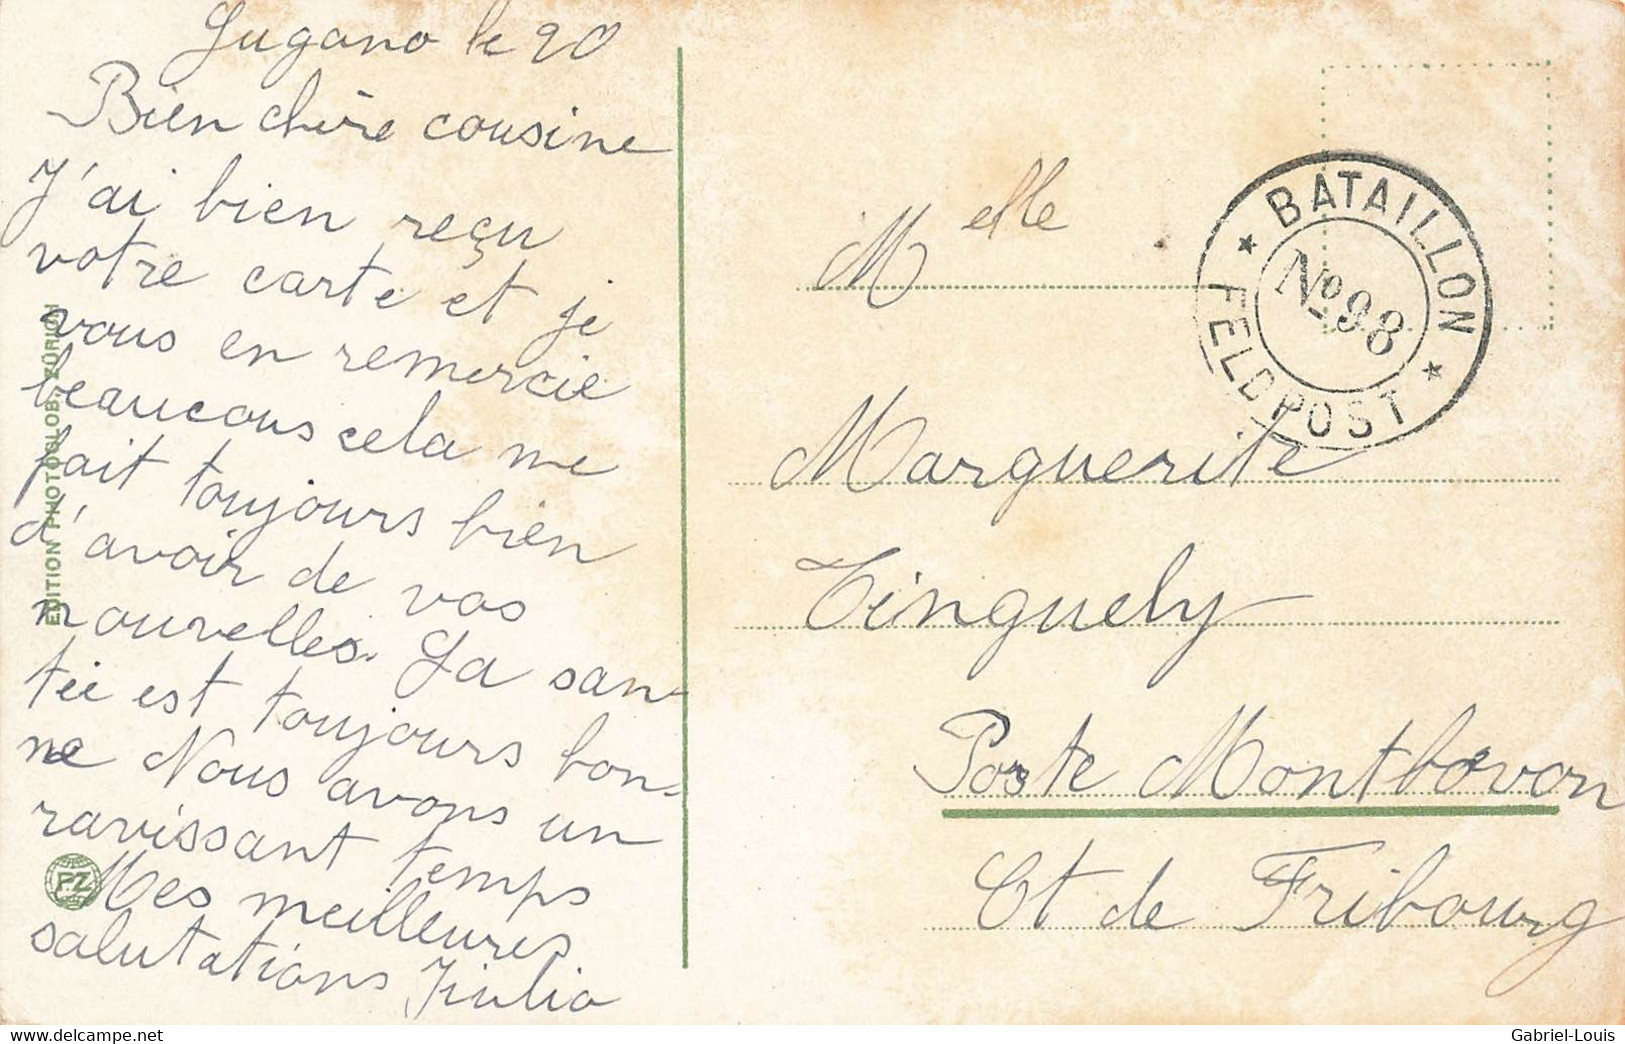 Lugano le 20
Bien chère cousine
J'ai bien reçu
votre carte et je
vous en remercie
beaucous cela me
fait toujours bien
d'avoir de vos
nouvelles. La san-
tée est toujours bon-
ne Nous avons un
ravissant temps
Mes meilleures
salutations Julia
EDITION PHOTOGLOB, ZÜRICH
PZ
BATAILLON
No 98
FELDPOST
Melle
Marguerite
Tinguely
Poste Montbovon
Ct de Fribourg
https://www.delcampe.net
Gabriel-Louis